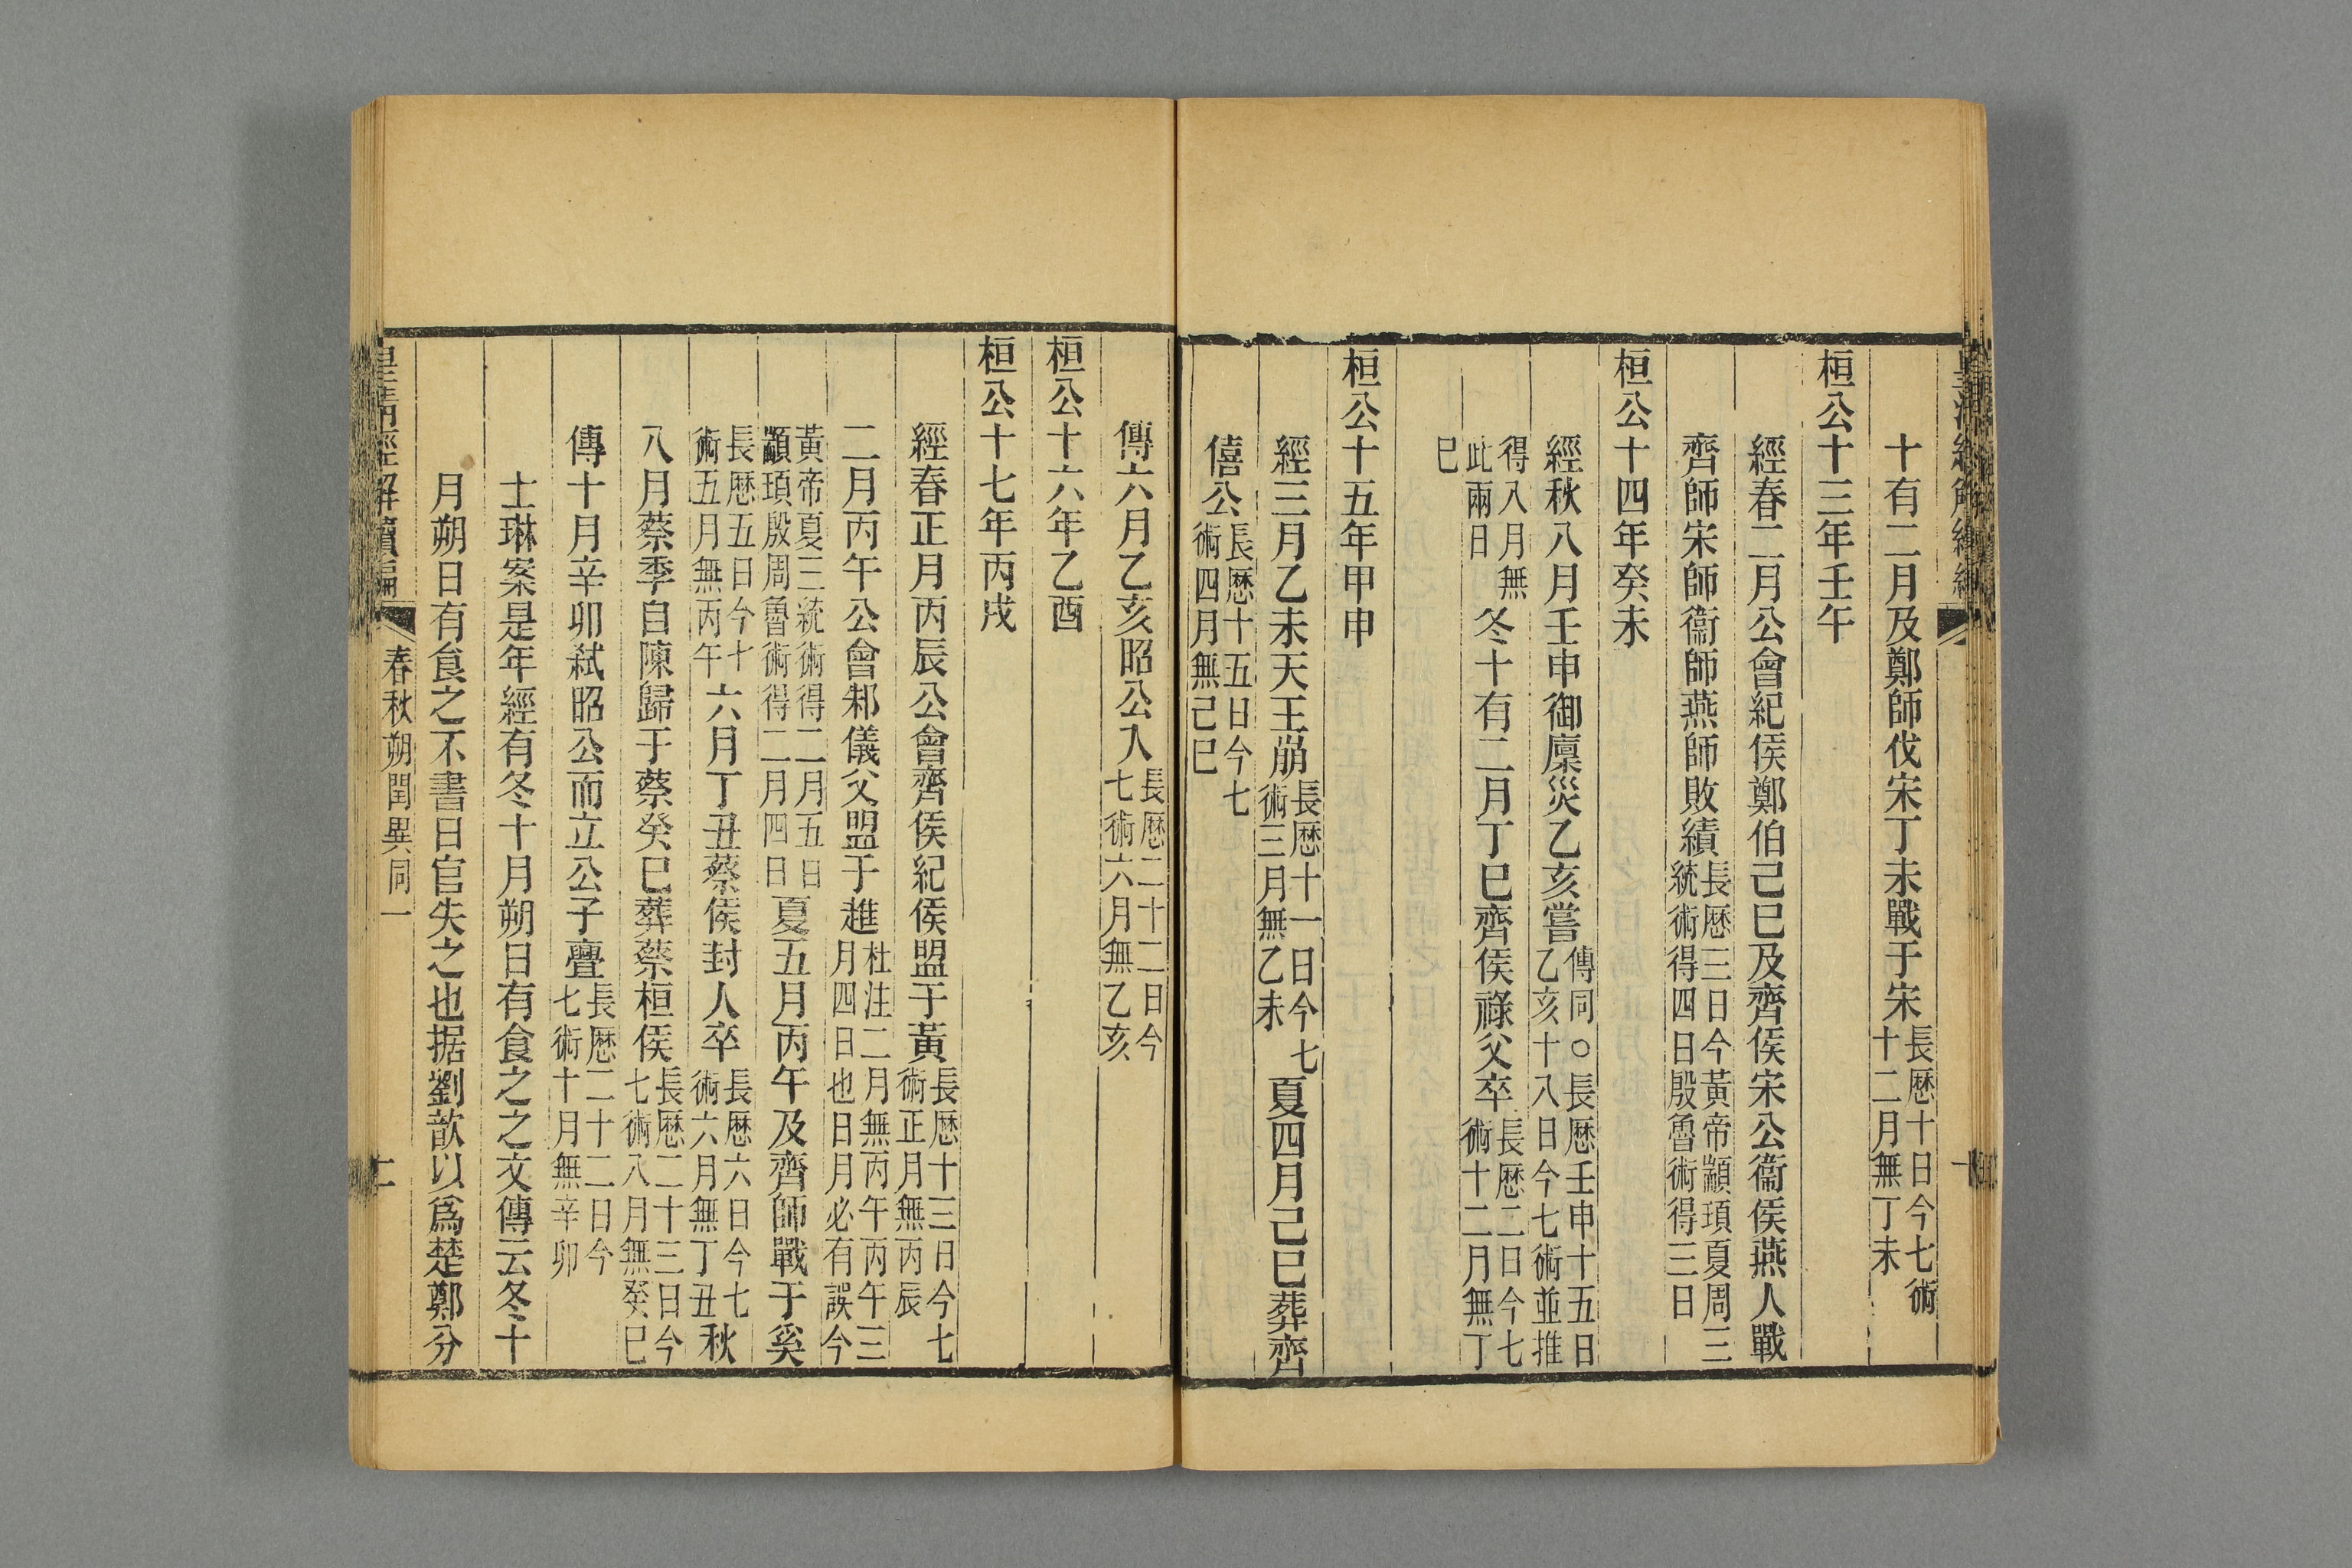 十有二月及鄭師伐宋丁未戰于宋長厯十日今七術十二月無丁未
桓公十三年壬午
經春二月公會紀侯鄭伯己巳及齊侯宋公衞侯燕人戰
齊師宋師衞師燕師敗績長厯三日今黃帝顓頊夏周三統術得四日殷魯術得三日
桓公十四年癸未
經秋八月壬申御廩災乙亥嘗傳同○長厯壬申十五日乙亥十八日今七術並推
得八月無此兩日冬十有二月丁巳齊侯祿父卒長厯二日今七術十二月無丁
巳
桓公十五年甲申
經三月乙未天王崩長厯十一日今七術三月無乙未夏四月己巳葬齊
僖公長厯十五日今七術四月無己巳
傳六月乙亥昭公入長厯二十二日今七術六月無乙亥
桓公十六年乙酉
桓公十七年丙戌
經春正月丙辰公會齊侯紀侯盟于黃長厯十三日今七術正月無丙辰
二月丙午公會邾儀父盟于趡杜注二月無丙午丙午三月四日也日月必有誤今
黃帝夏三統術得二月五日顓頊殷周魯術得二月四日夏五月丙午及齊師戰于奚
長厯五日今十術五月無丙午六月丁丑蔡侯封人卒長厯六日今七術六月無丁丑秋
八月蔡季自陳歸于蔡癸巳葬蔡桓侯長厯二十三日今七術八月無癸巳
傳十月辛卯弒昭公而立公子亹長厯二十二日今七術十月無辛卯
士琳案是年經有冬十月朔日有食之之文傳云冬十
月朔日有食之不書日官失之也据劉歆以爲楚鄭分
皇淸經解續編 春秋朔閏異同一